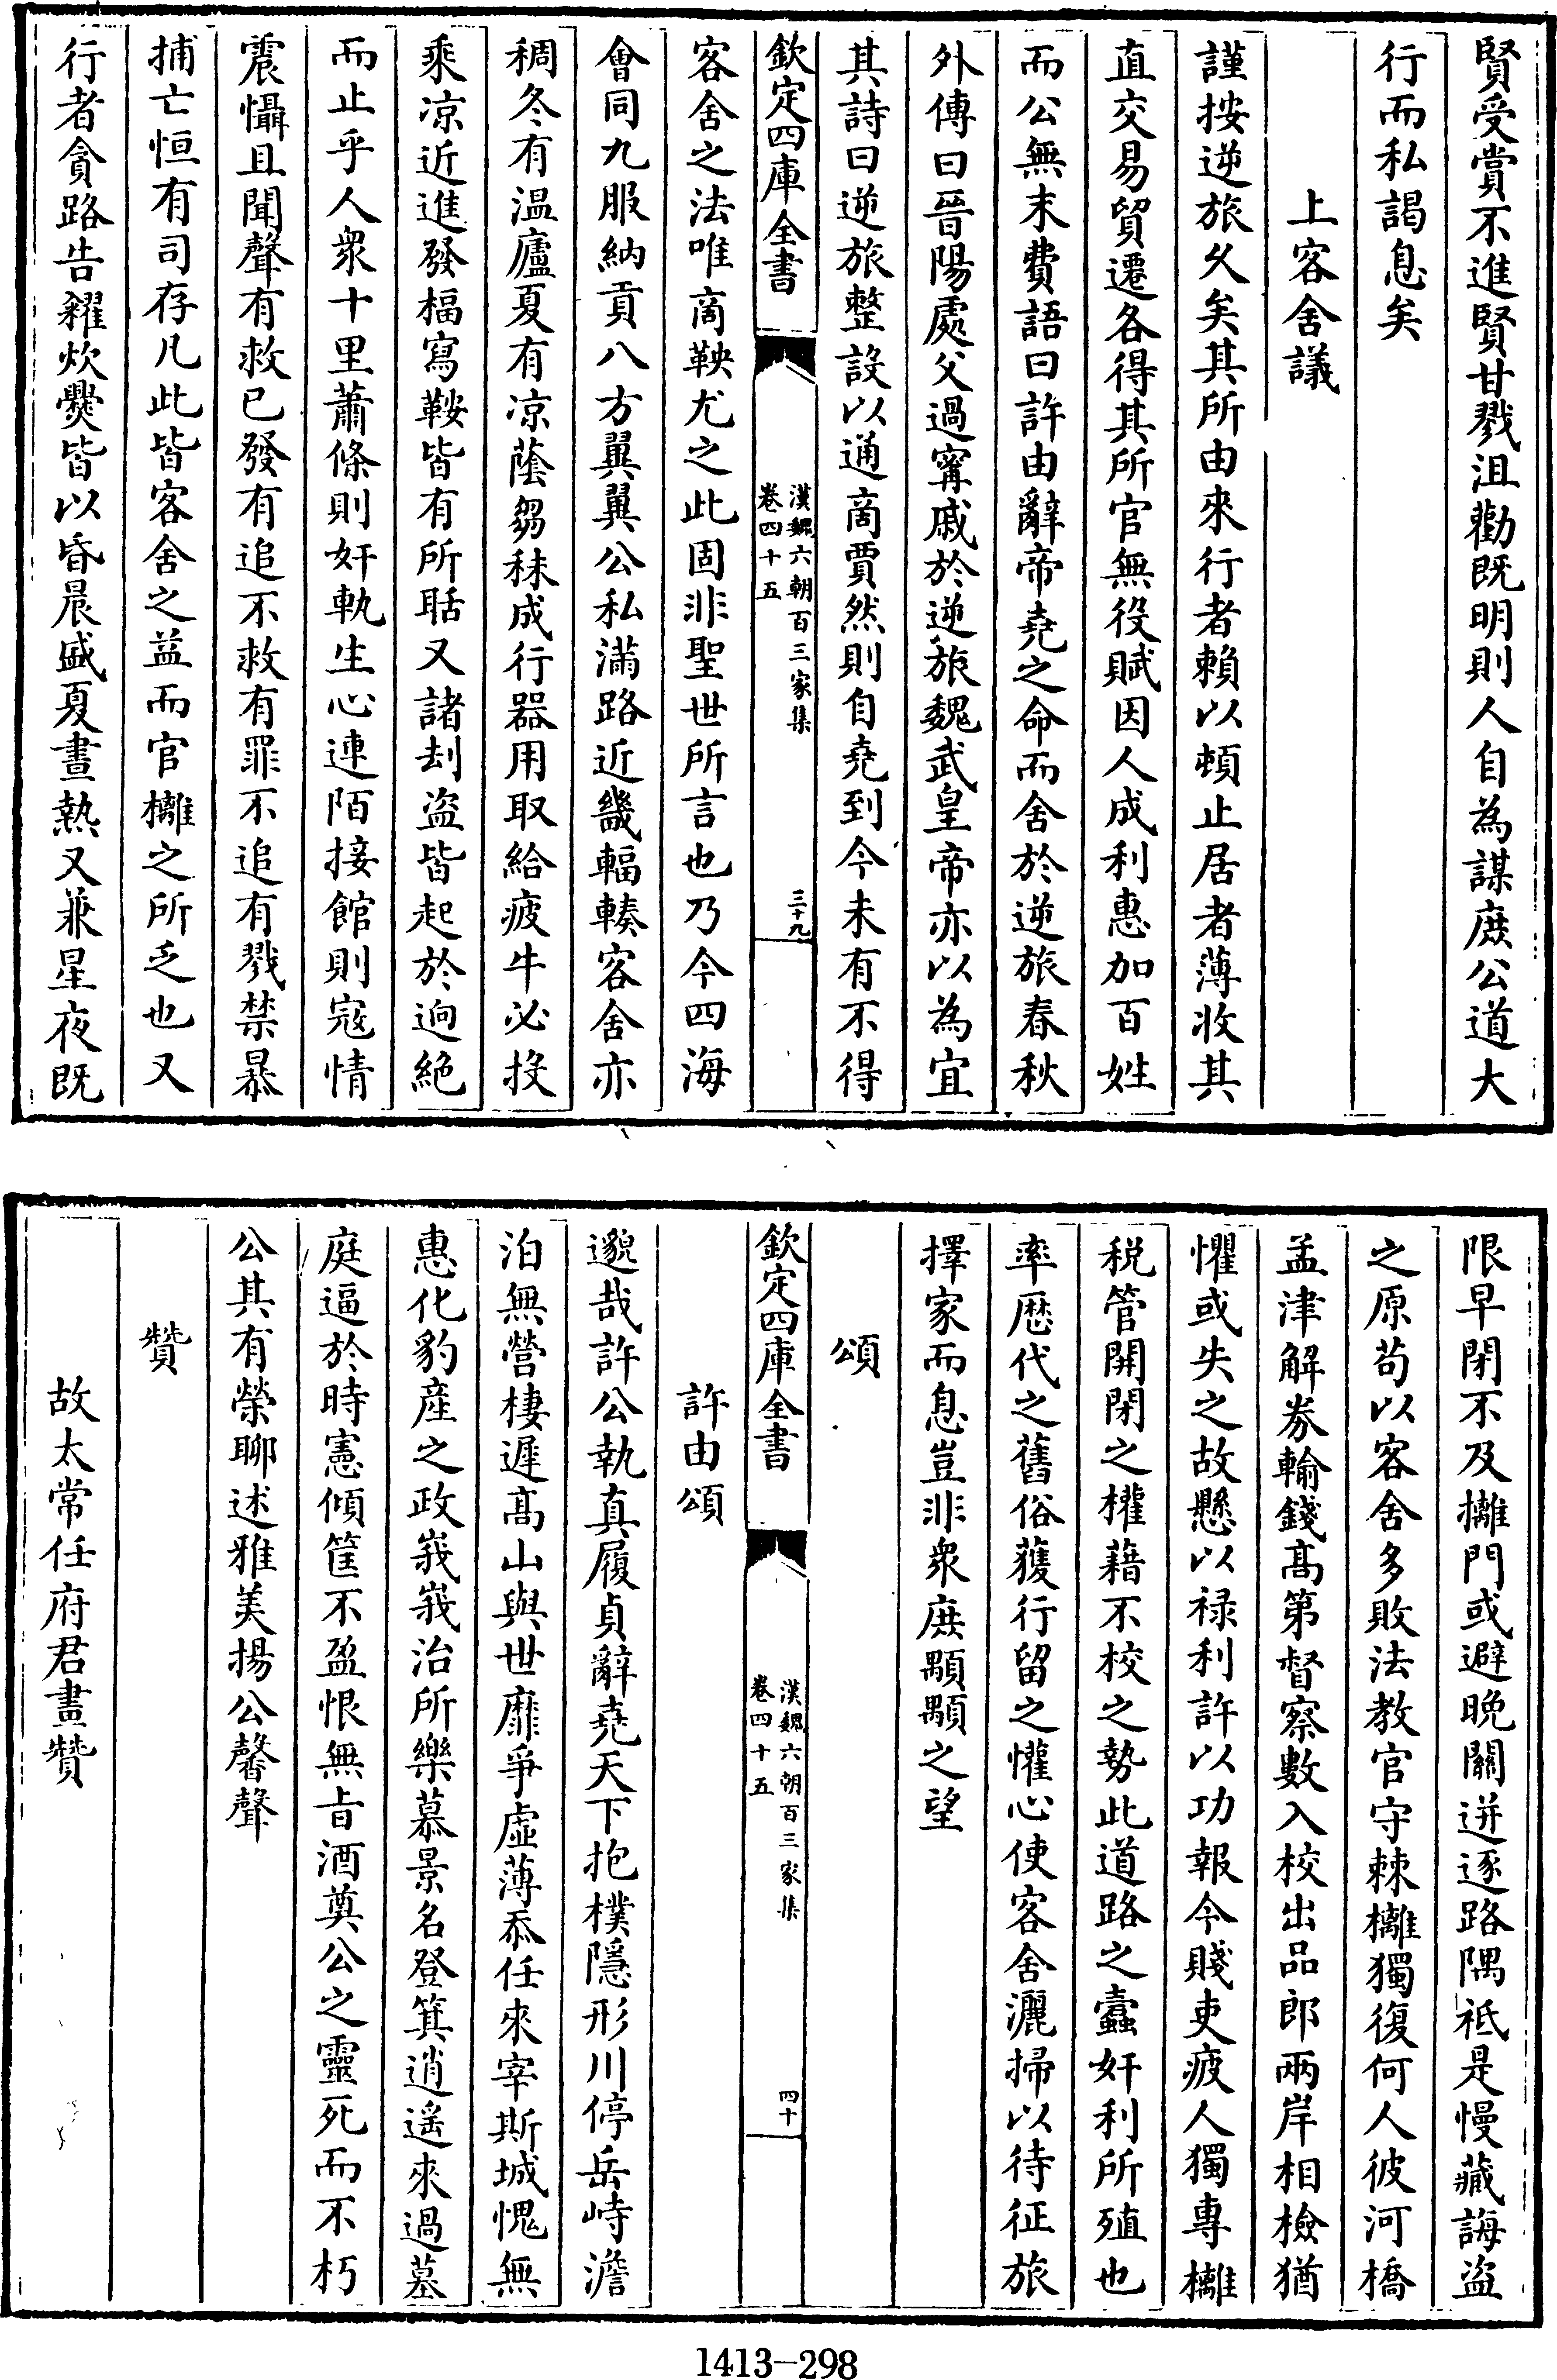 賢受賞不進賢甘戮沮勸既明則人自為謀庶公道大
行而私謁息矣
上客舍議
謹按逆旅久矣其所由來行者賴以頓止居者薄收其
直交易貿遷各得其所官無役賦因人成利惠加百姓
而公無末費語曰許由辭帝堯之命而舍於逆旅春秋
外傳曰晉陽處父過甯戚於逆旅魏武皇帝亦以為宜
其詩曰逆旅整設以通商賈然則自堯到今未有不得
欽定四庫全書
漢魏六朝百三家集
卷四十五
三十九
客舍之法唯商鞅尤之此固非聖世所言也乃今四海
會同九服納貢八方翼翼公私滿路近畿輻輳客舍亦
稠冬有温廬夏有凉蔭芻秣成行器用取給疲牛必投
乘凉近進發槅寫鞍皆有所聒又諸刦盗皆起於迥絶
而止乎人衆十里蕭條則奸軌生心連陌接館則寇情
震懾且聞聲有救已發有追不救有罪不追有戮禁暴
捕亡恒有司存凡此皆客舍之益而官㰚之所乏也又
行者貪路告糴炊爨皆以昏晨盛夏晝熱又兼星夜既
限早閉不及㰚門或避晚關迸逐路隅祗是慢藏誨盗
之原苟以客舍多敗法教官守棘㰚獨復何人彼河橋
孟津解劵輸錢髙第督察數入校出品郎兩岸相檢猶
懼或失之故懸以禄利許以功報今賤吏疲人獨專㰚
税管開閉之權藉不校之勢此道路之蠧奸利所殖也
率厯代之舊俗獲行留之懽心使客舍灑掃以待征旅
擇家而息豈非衆庶顒顒之望
頌
欽定四庫全書
漢魏六朝百三家集
卷四十五
四十
許由頌
邈哉許公執真履貞辭堯天下抱樸隱形川停岳峙澹
泊無營棲遲髙山與世靡爭虚薄忝任來宰斯城愧無
惠化豹産之政峩峩治所樂慕景名登箕逍遥來過墓
庭逼於時憲傾筐不盈恨無㫖酒奠公之靈死而不朽
公其有榮聊述雅美揚公馨聲
贊
故太常任府君畫贊
1413-298